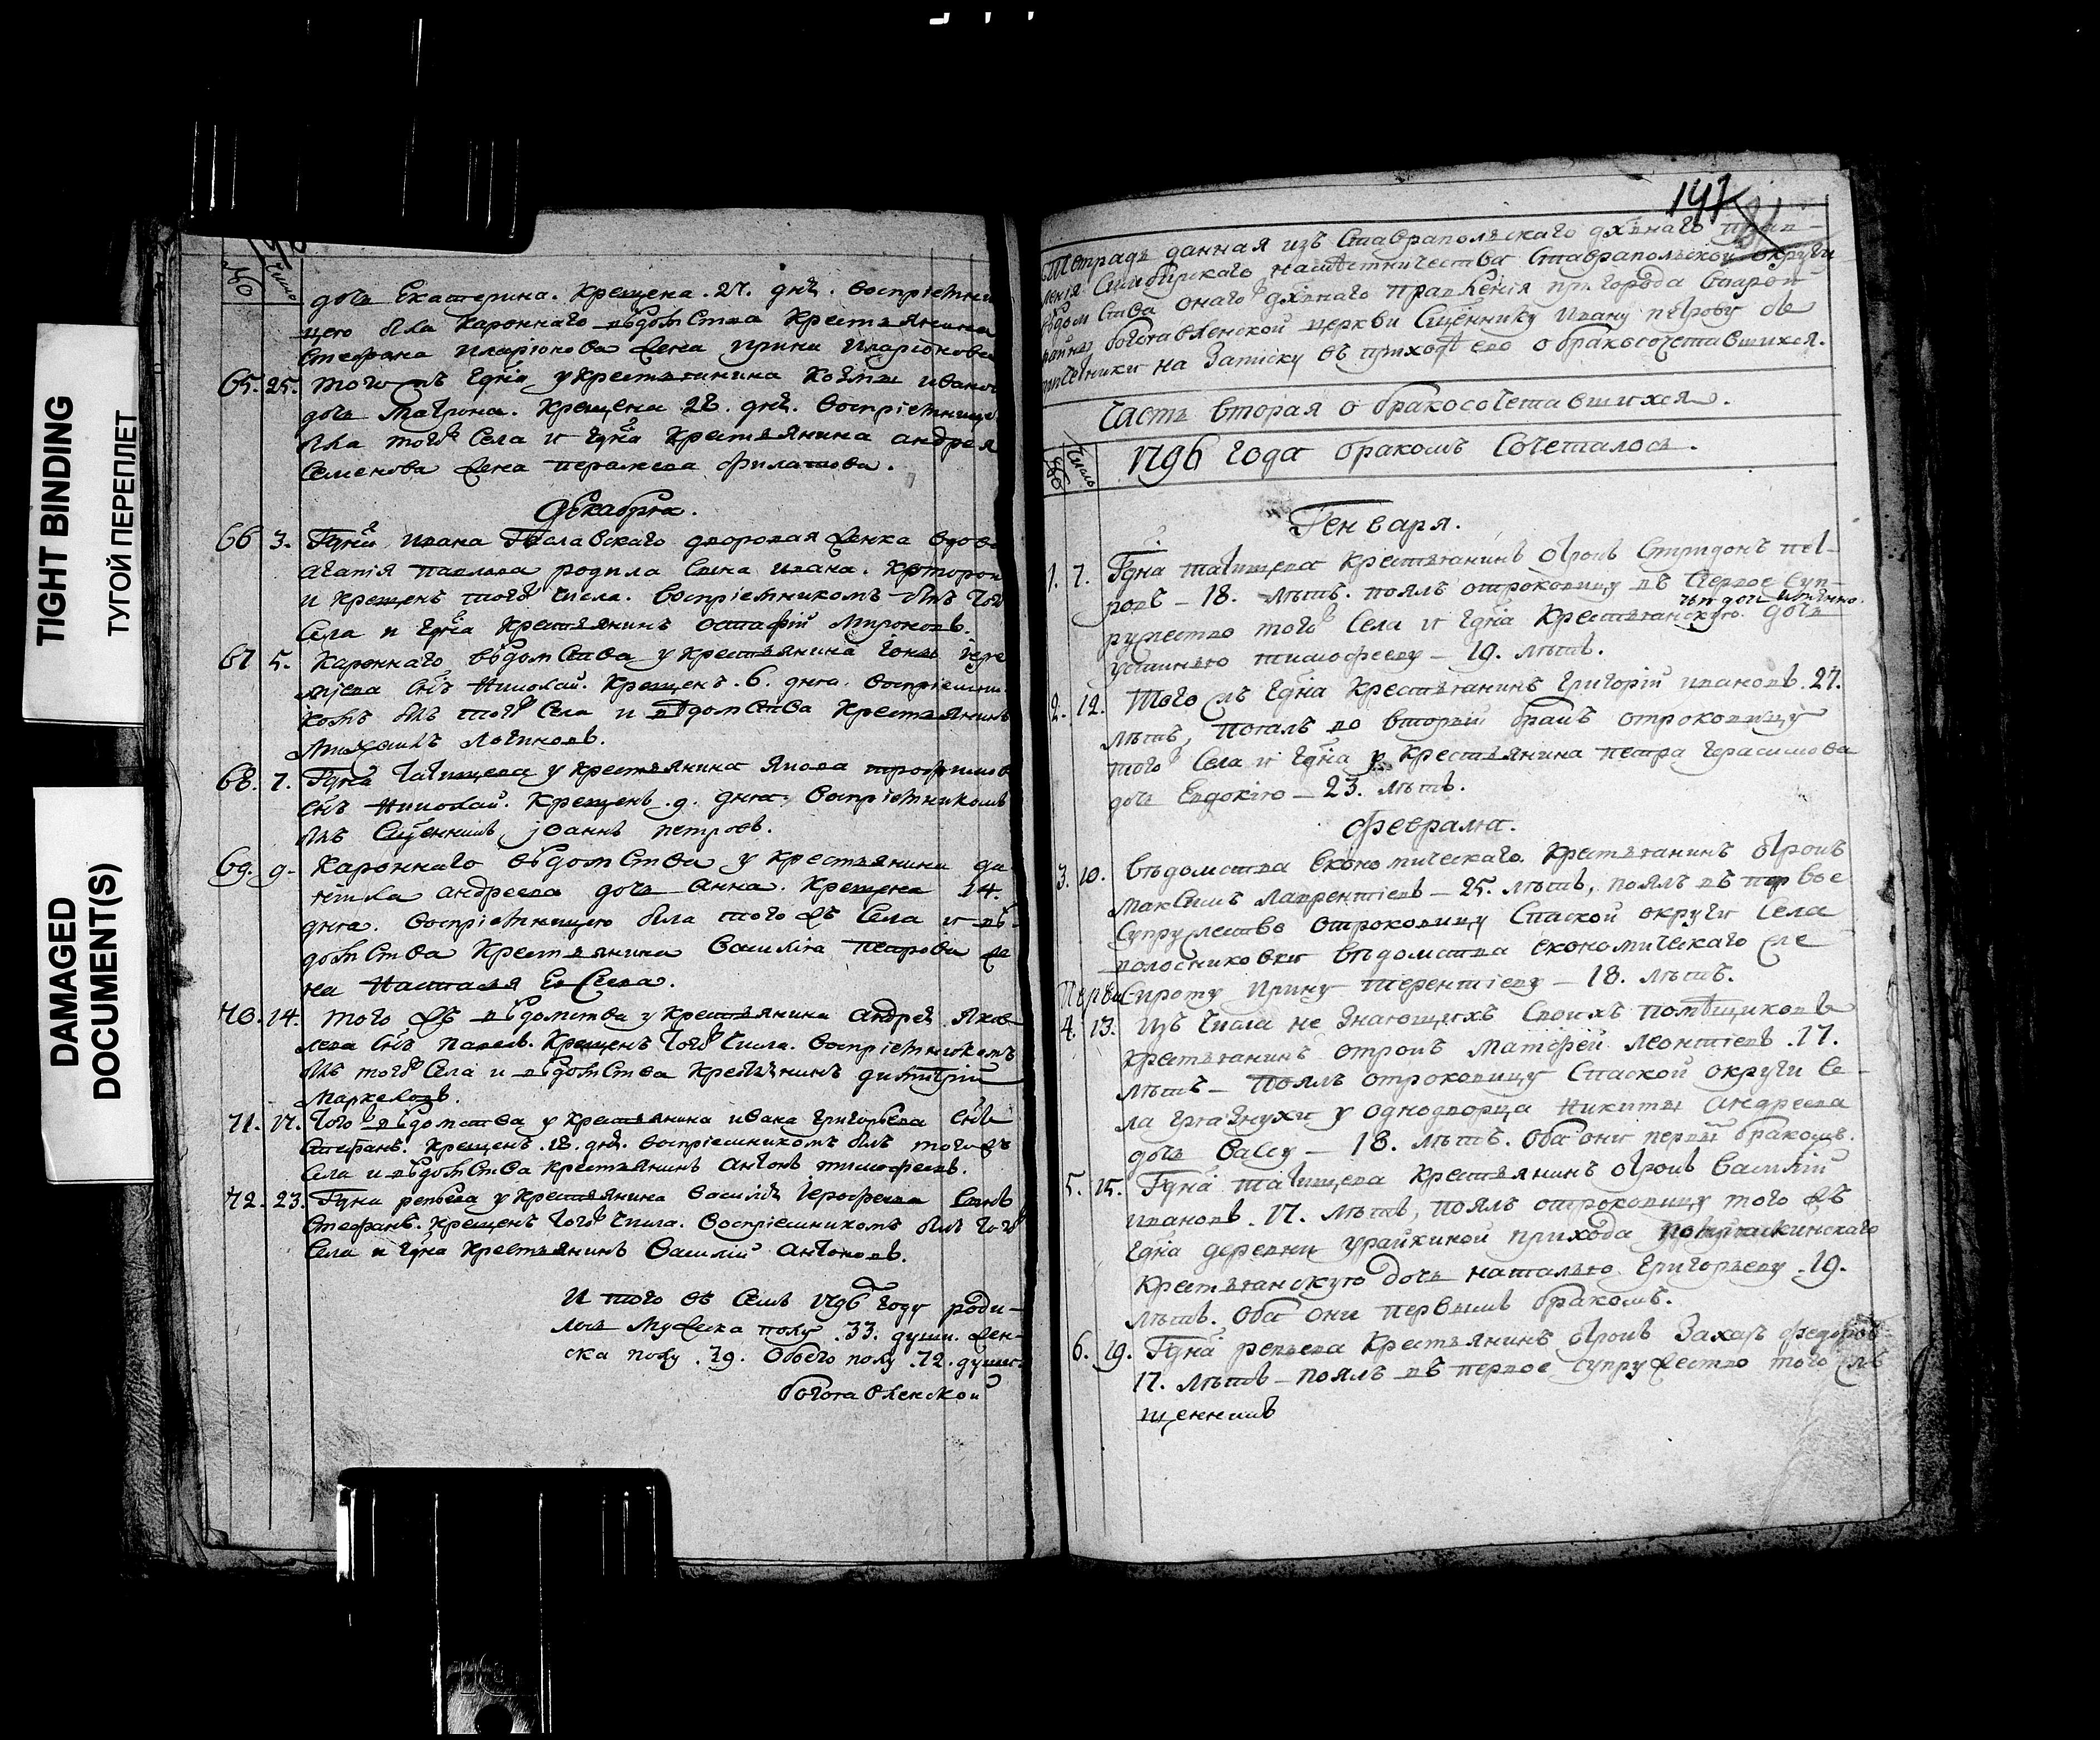 TIGHT BINDING
ТУГОЙ ПЕРЕПЛЕТ
DAMAGED
DOCUMENT(S)
№ Число
дочь Екатерина. Крещена .27. днѧ. воспрiемни
цею была Кароннаго вѣдомства Крестьянина
Стефана Иларiонова жена Ирина Иларiонова
65. 25. того жъ Гдна у Крестьянина Козмы Ивано
дочь Матрона. Крещена 28. днѧ. воспрiемнице
была того Села и Гдна Крестьянина андрея
Семенова жена филатова.
Декабрѧ.
66 3. Гдна Ивана дворовая женка вдова
агапiя павлова родила сына ивана. Которой
и Крещенъ того числа. Воспрiемникомъ былъ того
Села и Гдна Крестьянинъ остафiй Мироновъ.
67 5. Кароннаго вѣдомства у Крестьянина
снъ Николай. Крещенъ .6. дня. воспрiемни
комъ былъ того Села и вѣдомства Крестьянинъ
Михаилъ Логиновъ.
68. 7. Гдна Татищева у Крестьянина Якова трофимов
снъ Николай. Крещенъ .9. дня. Воспрiемникомъ
былъ Сщенникъ jоаннъ петровъ.
69. 9. Кароннаго вѣдомства у Крестьянина да
нiила андреева дочь анна. Крещена 14.
дня. Воспрiемницею была того жъ Села и вѣ-
домства Крестьянина Василiя петрова же
на Наталья Евсеева.
70. 14. того жъ вѣдомства у Крестьянина андрея Яков
лева снъ павелъ. Крещенъ того числа. Воспрiемникомъ
былъ того Села и вѣдомства Крестьянинъ димитрiй
Маркеловъ.
71. 17. того вѣдомства у Крестьянина ивана григорьева снъ
Стефанъ. Крещенъ .18. днѧ. воспрiемникомъ былъ того жъ
Села и вѣдомства Крестьянинъ антонъ тимофеевъ.
72. 23. Гдна репьева у Крестьянина василiя Iерофеева сынъ
Стефанъ. Крещенъ того числа. Воспрiемникомъ былъ того
Села и Гдна Крестьянинъ Василiй антоновъ.
И того въ Семъ 1796 году роди-
лось мужеска полу .33. души. жен-
ска полу .39. Обоего полу .72. души.
богоявленской
147
Тетрадь данная изъ Ставрапольскаго дхвнаго прав-
ленiя Симбирскаго намѣстничества Ставрапольской округи
вѣдомства онаго дхвнаго правленiя пригорода
богоявленской церкви Сщеннику Ивану петрову
на Записку въ приходѣ его о бракосочетавшихся.
Часть вторая о бракосочетавшихся.
№ Число 1796 года бракомъ Сочеталось.
Генваря.
1. 7. Гдна татищева Крестьянинъ отрокъ Спиридонъ пет-
ровъ - 18. лѣтъ. поялъ отроковицу въ первое Суп-
ружество того Села и Гдна Крестьянскую дочь
устинью тимофееву - 19. лѣтъ.
2. 12. Того жъ Гдна Крестьянинъ григорiй ивановъ .27.
лѣтъ, поялъ во вторый бракъ отроковицу
того Села и Гдна у Крестьянина петра герасимова
дочь Евдокiю - 23. лѣтъ.
Февраля.
3. 10. вѣдомства економическаго Крестьянинъ отрокъ
Максимъ лаврентiевъ - 25. лѣтъ, поялъ въ первое
супружество отроковицу Спаской округи села
полосниковки вѣдомства економическаго
Сироту Ирину терентiеву - 18. лѣтъ.
4. 13. Изъ числа не знающихъ своихъ помѣщиковъ
Крестьянинъ отрокъ Матфей леонтiевъ .17.
лѣтъ - поялъ отроковицу Спаской округи се-
ла у однодворца Никиты андреева
дочь Вассу - 18. лѣтъ. Оба они первый бракомъ.
5. 15. Гдна татищева Крестьянинъ отрокъ Василiй
ивановъ .17. лѣтъ, поялъ отроковицу того жъ
Гдна деревни урайкиной прихода
Крестьянскую дочь наталью григорьеву .19.
лѣтъ. Оба они первымъ бракомъ.
6. 19. Гдна репьева Крестьянинъ отрокъ Захаръ федоровъ
17. лѣтъ - поялъ въ первое супружество того жъ
щенникъ